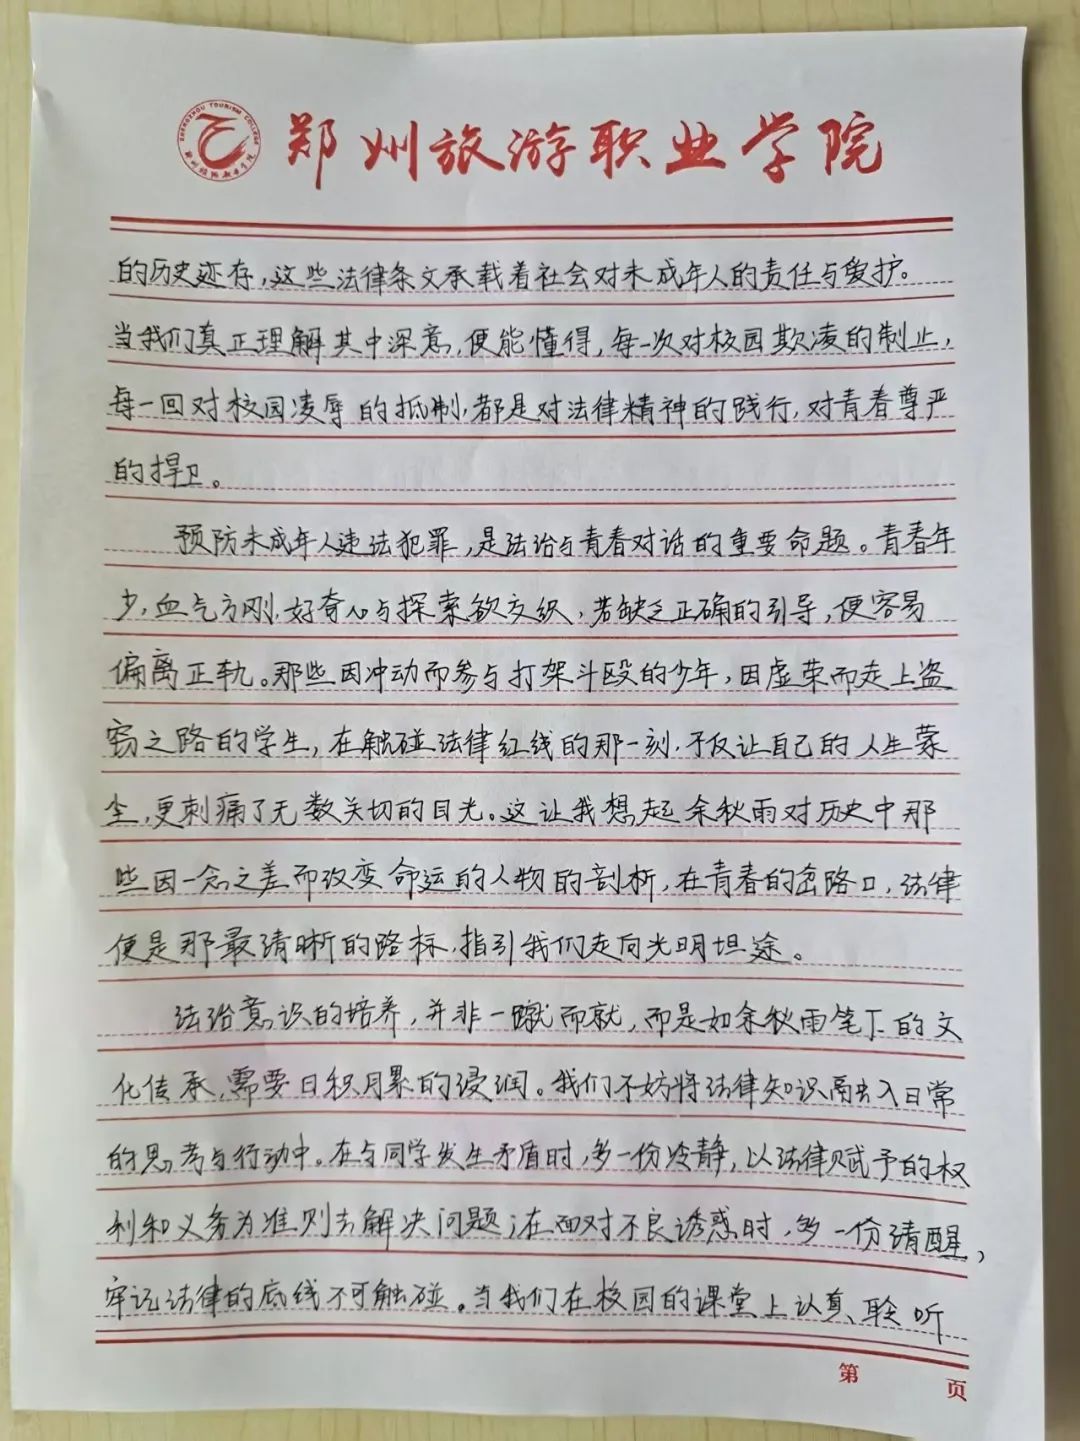 ZHENGZHOU TOURISM COLLEGE
郑州旅游职业学院
郑州旅游职业学院
的历史迹存,这些法律条文承载着社会对未成年人的责任与爱护。
当我们真正理解其中深意,便能懂得,每一次对校园欺凌的制止,
每一回对校园凌辱的抵制,都是对法律精神的践行,对青春尊严
的捍卫。
预防未成年人违法犯罪,是法治与青春对话的重要命题。青春年
少,血气方刚,好奇心与探索欲交织,若缺乏正确的引导,便容易
偏离正轨。那些因冲动而参与打架斗殴的少年,因虚荣而走上盗
窃之路的学生,在触碰法律红线的那一刻,不仅让自己的人生蒙
尘,更刺痛了无数关切的目光。这让我想起余秋雨对历史中那
些因一念之差而改变命运的人物的剖析,在青春的岔路口,法律
便是那最清晰的路标,指引我们走向光明坦途。
法治意识的培养,并非一蹴而就,而是如余秋雨笔下的文
化传承,需要日积月累的浸润。我们不妨将法律知识融入日常
的思考与行动中。在与同学发生矛盾时,多一份冷静,以法律赋予的权
利和义务为准则去解决问题;在面对不良诱惑时,多一份清醒,
牢记法律的底线不可触碰。当我们在校园的课堂上认真聆听
第 页